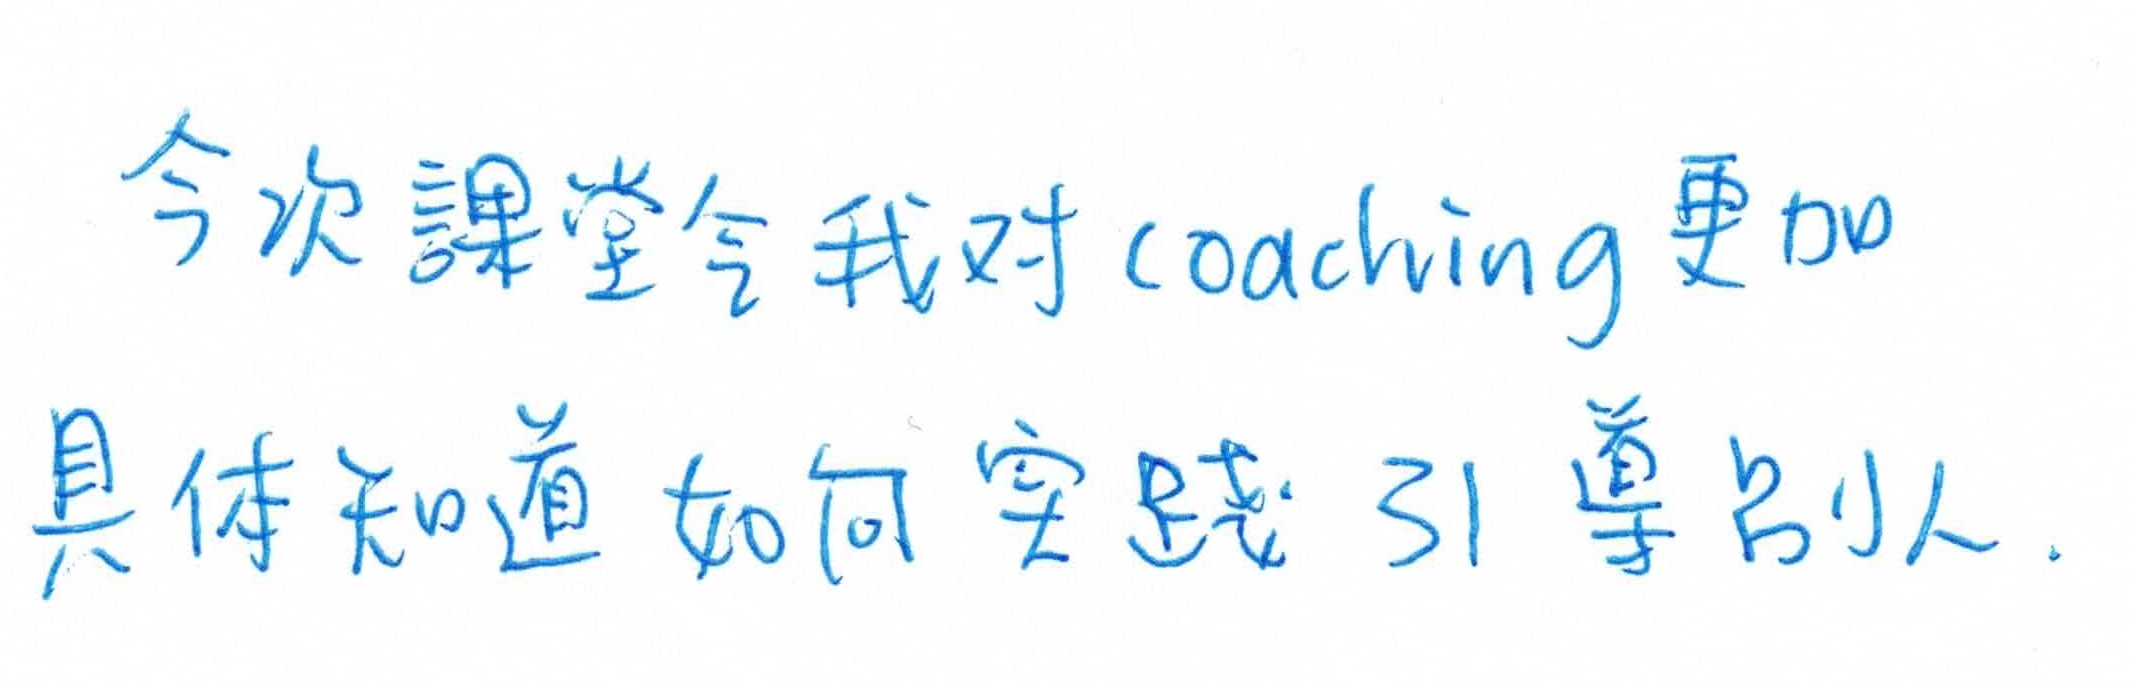 今次課堂令我对coaching更加
具体知道如何実践引導別人.